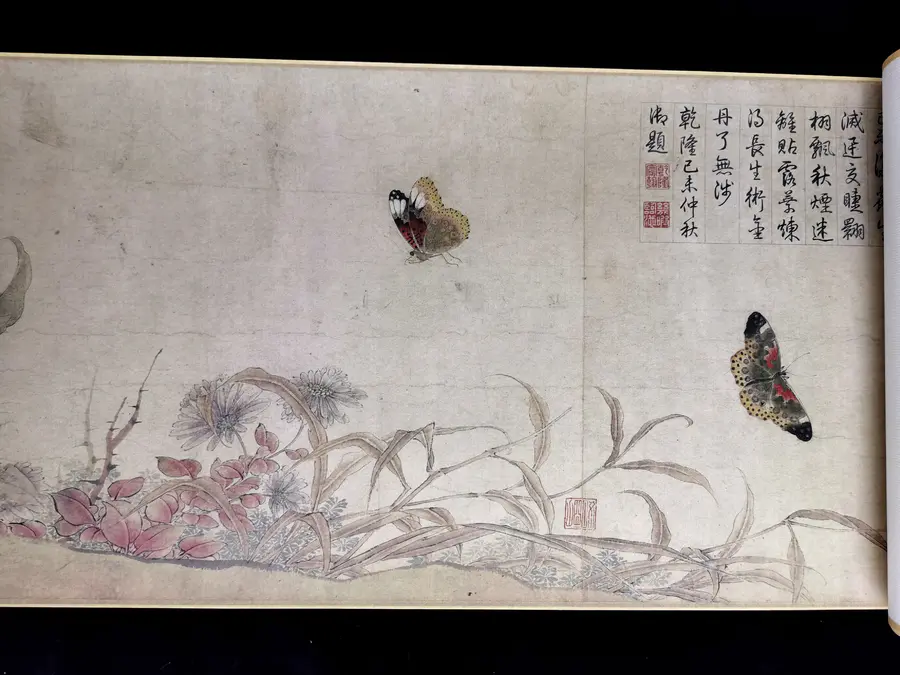 交睫翾
栩飄秋煙迷
離貼露葉煉
得長生術金
丹了無涉
乾隆己未仲秋
御題